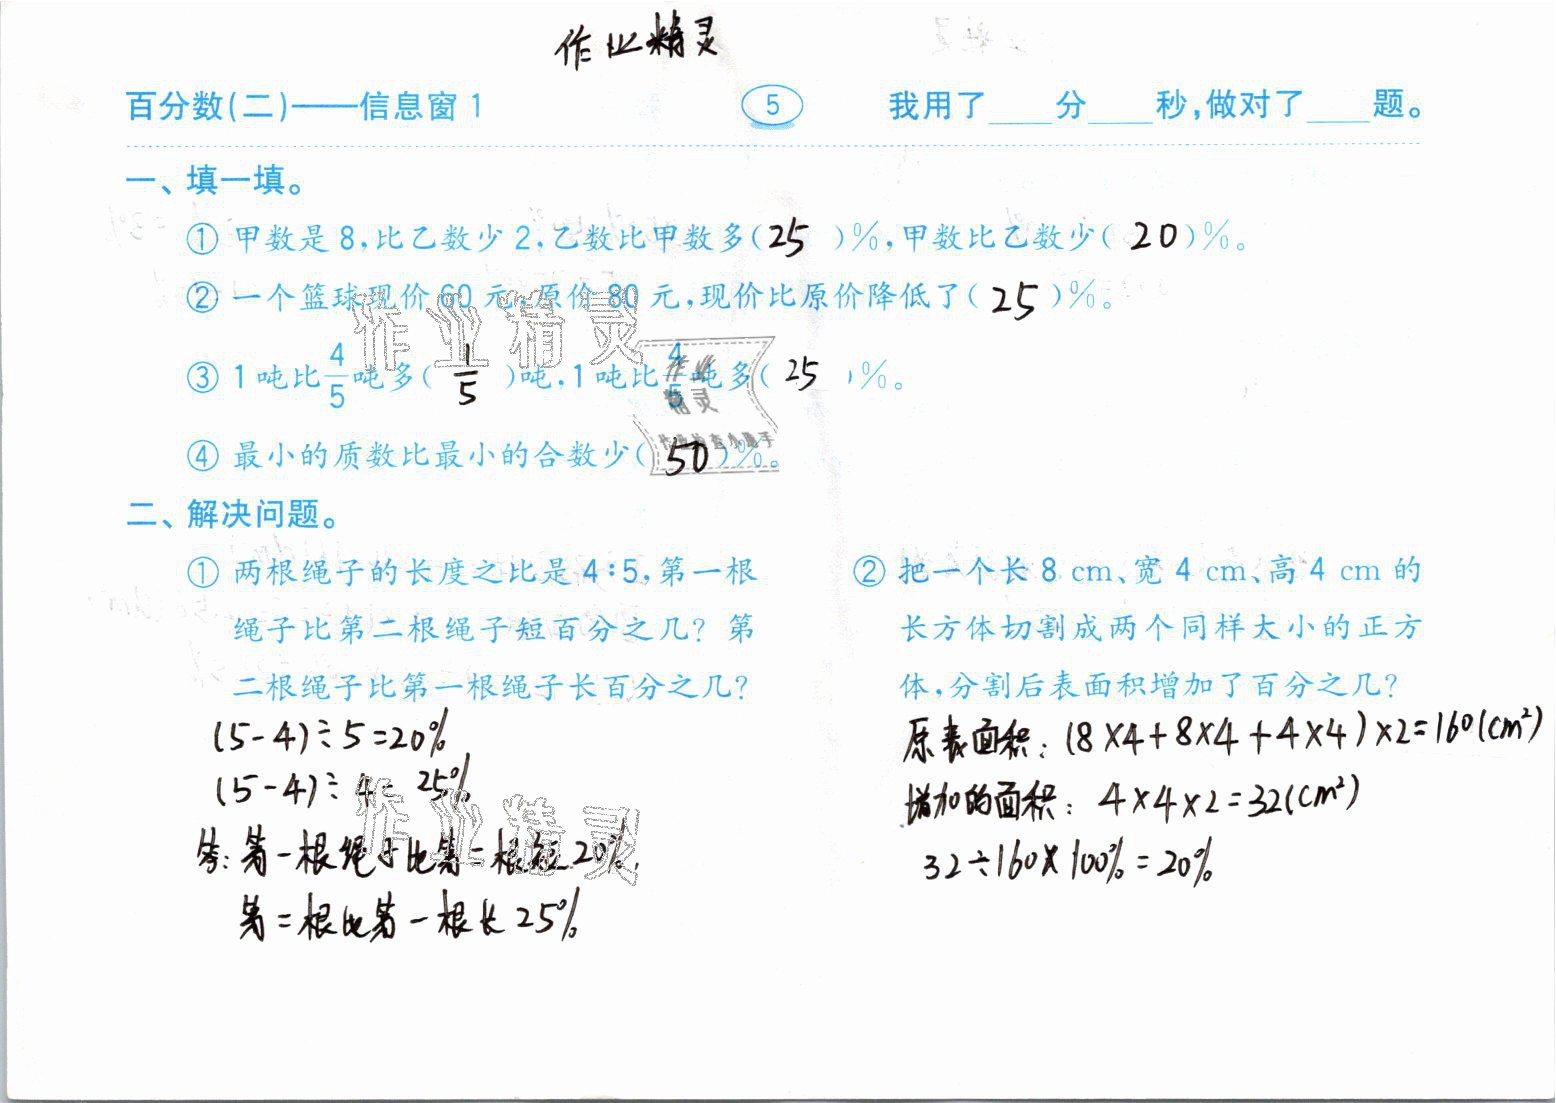 作业精灵
百分数(二)——信息窗1 5 我用了____分____秒,做对了____题。
一、填一填。
① 甲数是8,比乙数少2,乙数比甲数多(25)%,甲数比乙数少(20)%。
② 一个篮球现价60元,原价80元,现价比原价降低了(25)%。
作业精灵
③ 1吨比4/5吨多(1/5)吨,1吨比4/5吨多(25)%。
作业
精灵
④ 最小的质数比最小的合数少(50)%。
二、解决问题。
① 两根绳子的长度之比是4:5,第一根
绳子比第二根绳子短百分之几? 第
二根绳子比第一根绳子长百分之几?
(5-4)÷5=20%
(5-4)÷4=25%
作业精灵
答:第一根绳子比第二根短20%,
第二根比第一根长25%
② 把一个长8 cm、宽4 cm、高4 cm的
长方体切割成两个同样大小的正方
体,分割后表面积增加了百分之几?
原表面积:(8×4+8×4+4×4)×2=160(cm²)
增加的面积:4×4×2=32(cm²)
32÷160×100%=20%